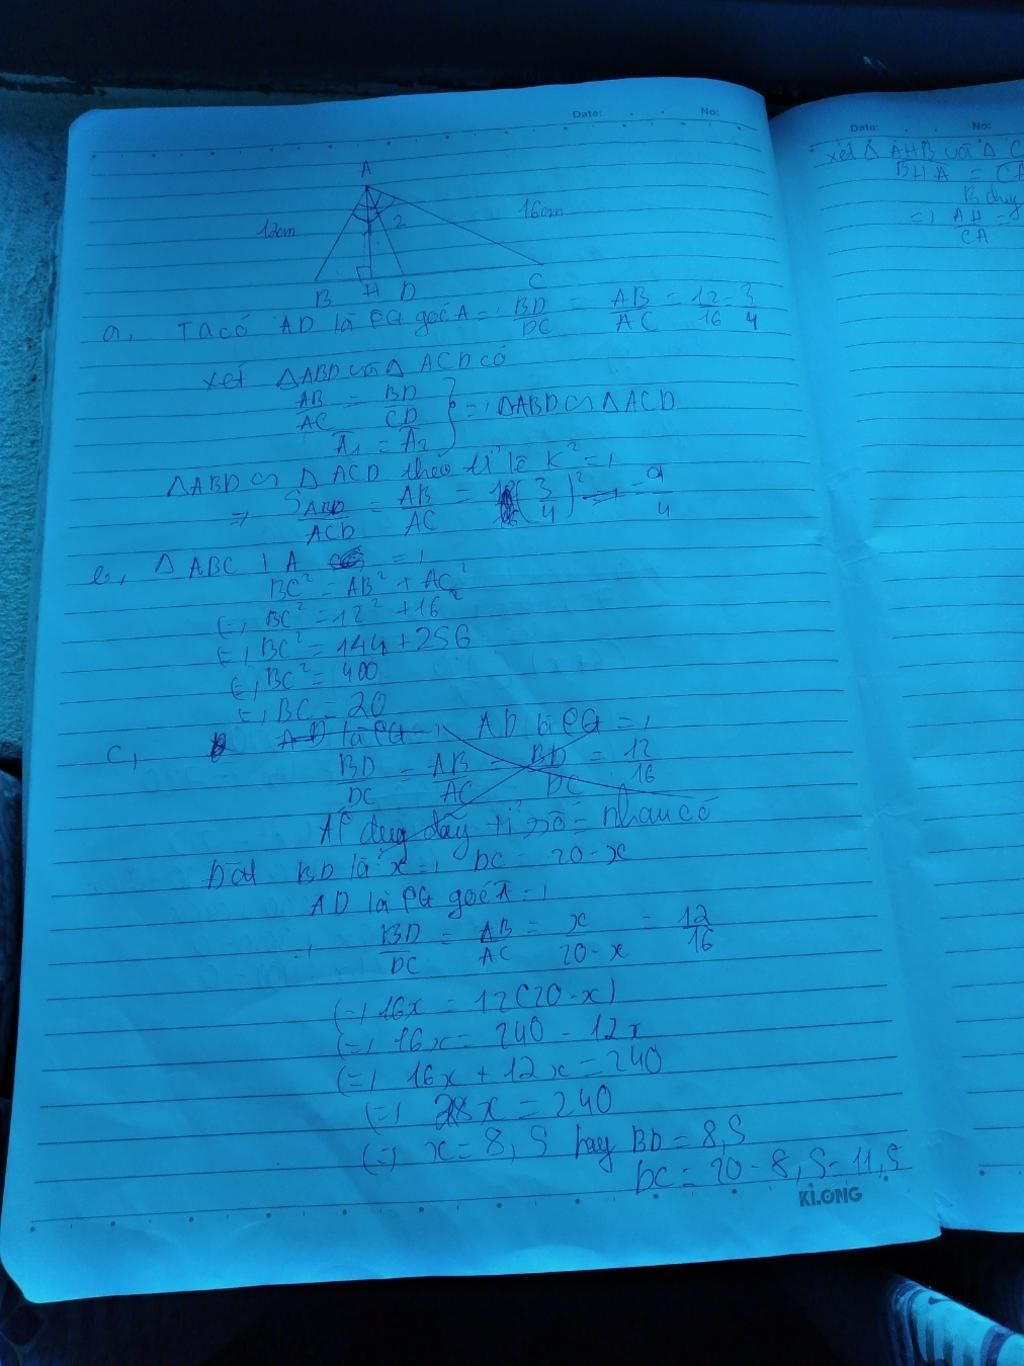 Date: No:
A
12cm 16cm
2
B H D C
a, Ta có AD là PG góc A =, BD/DC = AB/AC = 12/16 = 3/4
xét △ABD và △ ACD có
AB/AC = BD/CD
A1 = A2 } =, △ABD ∽ △ACD
△ABD ∽ △ ACD theo tỉ lệ K² =,
=> SABD/ACD = AB/AC = (3/4)² = 9/4
△ ABC ⊥ A =,
BC² = AB² + AC²
(=, BC² = 12² + 16²
(=, BC² = 144 + 256
(=, BC² = 400
(=, BC = 20
C, AD là PG =, AD là PG =,
BD/DC = AB/AC = BD/DC = 12/16
ÁP dụng dãy tỉ số = nhau có
Đặt BD là x =, DC = 20 - x
AD là PG góc A =,
=, BD/DC = AB/AC = x/20-x = 12/16
(=, 16x = 12(20-x)
(=, 16x = 240 - 12x
(=, 16x + 12x = 240
(=, 28x = 240
(=, x = 8,5 hay BD = 8,5
DC = 20 - 8,5 = 11,5
KLONG
Date: No:
xét △ AHB và △ C
BHA =
B chung
=, AH/CA =